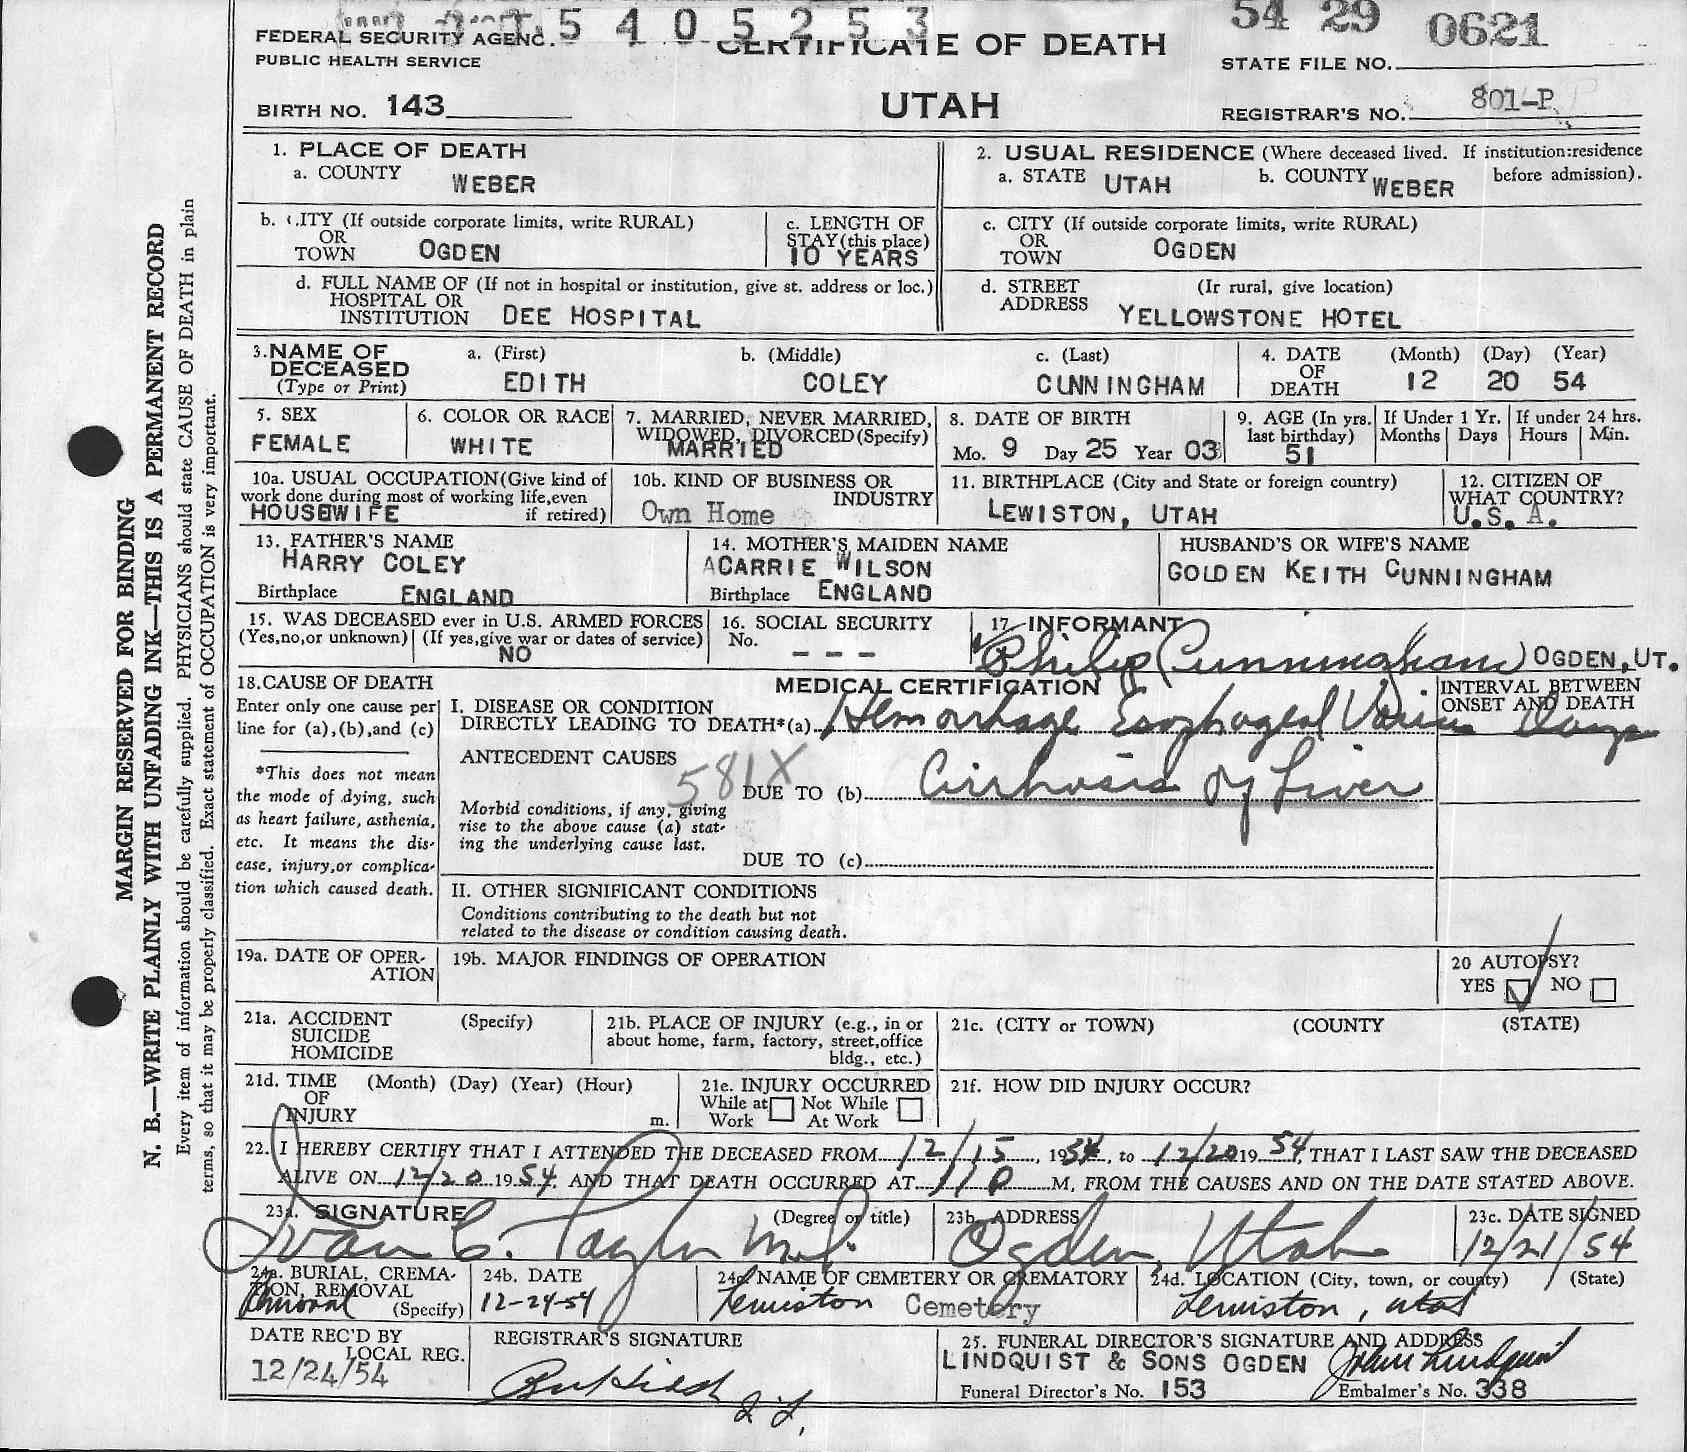 5405253
54 29 0621
FEDERAL SECURITY AGENC.
PUBLIC HEALTH SERVICE
CERTIFICATE OF DEATH
STATE FILE NO.
BIRTH NO. 143
UTAH
REGISTRAR'S NO. 801-P
1. PLACE OF DEATH
a. COUNTY WEBER
2. USUAL RESIDENCE (Where deceased lived. If institution:residence
a. STATE UTAH b. COUNTY WEBER before admission).
b. CITY (If outside corporate limits, write RURAL)
OR
TOWN OGDEN
c. LENGTH OF
STAY (this place)
10 YEARS
c. CITY (If outside corporate limits, write RURAL)
OR
TOWN OGDEN
d. FULL NAME OF (If not in hospital or institution, give st. address or loc.)
HOSPITAL OR
INSTITUTION DEE HOSPITAL
d. STREET (Ir rural, give location)
ADDRESS YELLOWSTONE HOTEL
3. NAME OF
DECEASED
(Type or Print)
a. (First)
EDITH
b. (Middle)
COLEY
c. (Last)
CUNNINGHAM
4. DATE
OF
DEATH
(Month) (Day) (Year)
12 20 54
5. SEX
FEMALE
6. COLOR OR RACE
WHITE
7. MARRIED, NEVER MARRIED,
WIDOWED, DIVORCED (Specify)
MARRIED
8. DATE OF BIRTH
Mo. 9 Day 25 Year 03
9. AGE (In yrs.
last birthday)
51
If Under 1 Yr.
Months Days
If under 24 hrs.
Hours Min.
10a. USUAL OCCUPATION (Give kind of
work done during most of working life,even
HOUSEWIFE if retired)
10b. KIND OF BUSINESS OR
INDUSTRY
Own Home
11. BIRTHPLACE (City and State or foreign country)
LEWISTON, UTAH
12. CITIZEN OF
WHAT COUNTRY?
U.S.A.
13. FATHER'S NAME
HARRY COLEY
Birthplace ENGLAND
14. MOTHER'S MAIDEN NAME
ACARRIE WILSON
Birthplace ENGLAND
HUSBAND'S OR WIFE'S NAME
GOLDEN KEITH CUNNINGHAM
15. WAS DECEASED ever in U.S. ARMED FORCES
(Yes,no,or unknown) (If yes,give war or dates of service)
NO
16. SOCIAL SECURITY
No.
---
17. INFORMANT
Philip Cunningham OGDEN, UT.
18. CAUSE OF DEATH
Enter only one cause per
line for (a),(b),and (c)
*This does not mean
the mode of dying, such
as heart failure, asthenia,
etc. It means the dis-
ease, injury,or complica-
tion which caused death.
MEDICAL CERTIFICATION
INTERVAL BETWEEN
ONSET AND DEATH
I. DISEASE OR CONDITION
DIRECTLY LEADING TO DEATH*(a) Hemorrhage Esophageal Varices Days
ANTECEDENT CAUSES
581X
DUE TO (b) Cirrhosis of Liver
Morbid conditions, if any, giving
rise to the above cause (a) stat-
ing the underlying cause last.
DUE TO (c)
II. OTHER SIGNIFICANT CONDITIONS
Conditions contributing to the death but not
related to the disease or condition causing death.
19a. DATE OF OPER-
ATION
19b. MAJOR FINDINGS OF OPERATION
20 AUTOPSY?
YES NO
21a. ACCIDENT (Specify)
SUICIDE
HOMICIDE
21b. PLACE OF INJURY (e.g., in or
about home, farm, factory, street,office
bldg., etc.)
21c. (CITY or TOWN) (COUNTY (STATE)
21d. TIME (Month) (Day) (Year) (Hour)
OF
INJURY m.
21e. INJURY OCCURRED
While at Not While
Work At Work
21f. HOW DID INJURY OCCUR?
22. I HEREBY CERTIFY THAT I ATTENDED THE DECEASED FROM 12/15, 1954, to 12/20 1954, THAT I LAST SAW THE DECEASED
ALIVE ON 12/20 1954, AND THAT DEATH OCCURRED AT M, FROM THE CAUSES AND ON THE DATE STATED ABOVE.
23a. SIGNATURE (Degree or title)
Ivan C. Taylor M.D.
23b. ADDRESS
Ogden, Utah
23c. DATE SIGNED
12/21/54
24a. BURIAL, CREMA-
TION, REMOVAL
Removal (Specify)
24b. DATE
12-24-54
24c. NAME OF CEMETERY OR CREMATORY
Lewiston Cemetery
24d. LOCATION (City, town, or county) (State)
Lewiston, Utah
DATE REC'D BY
LOCAL REG.
12/24/54
REGISTRAR'S SIGNATURE
25. FUNERAL DIRECTOR'S SIGNATURE AND ADDRESS
LINDQUIST & SONS OGDEN John Lindquist
Funeral Director's No. 153 Embalmer's No. 338
MARGIN RESERVED FOR BINDING
N. B.—WRITE PLAINLY WITH UNFADING INK—THIS IS A PERMANENT RECORD
Every item of information should be carefully supplied. PHYSICIANS should state CAUSE OF DEATH in plain
terms, so that it may be properly classified. Exact statement of OCCUPATION is very important.